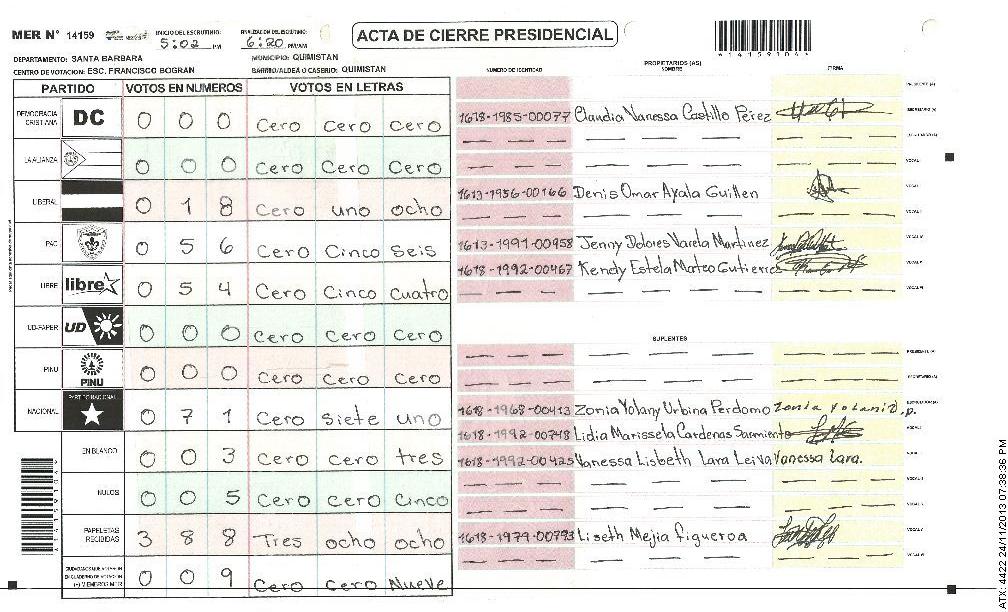 MER N° 14159 INICIO DEL ESCRUTINIO: 5:02 PM FINALIZACION DEL ESCRUTINIO: 6:20 PM/AM
ACTA DE CIERRE PRESIDENCIAL
DEPARTAMENTO: SANTA BARBARA MUNICIPIO: QUIMISTAN
CENTRO DE VOTACION: ESC. FRANCISCO BOGRAN BARRIO/ALDEA O CASERIO: QUIMISTAN
PARTIDO VOTOS EN NUMEROS VOTOS EN LETRAS
DEMOCRACIA CRISTIANA DC 0 0 0 Cero Cero Cero
LA ALIANZA 0 0 0 Cero Cero Cero
LIBERAL 0 1 8 Cero uno ocho
PAC 0 5 6 Cero Cinco Seis
LIBRE libre 0 5 4 Cero Cinco cuatro
UD-FAPER UD 0 0 0 Cero Cero Cero
PINU PINU 0 0 0 Cero Cero Cero
NACIONAL PARTIDO NACIONAL 0 7 1 Cero Siete uno
EN BLANCO 0 0 3 Cero Cero tres
NULOS 0 0 5 Cero Cero Cinco
PAPELETAS RECIBIDAS 3 8 8 Tres ocho ocho
0 0 9 Cero Cero Nueve
NUMERO DE IDENTIDAD PROPIETARIOS (AS) NOMBRE FIRMA
1618-1985-00077 Claudia Vanessa Castillo Pérez
1613-1956-00166 Denis Omar Ayala Guillen
1613-1991-00958 Jenny Dolores Varela Martinez
1618-1992-00467 Kendy Estela Mateo Gutierrez
SUPLENTES
1618-1968-00413 Zonia Yolany Urbina Perdomo
1618-1992-00748 Lidia Marissela Cardenas Sarmiento
1618-1992-00425 Vanessa Lisbeth Lara Leiva Vanessa Lara.
1618-1979-00793 Liseth Mejia Figueroa
ATX: 4422 24/11/2013 07:38:36 PM